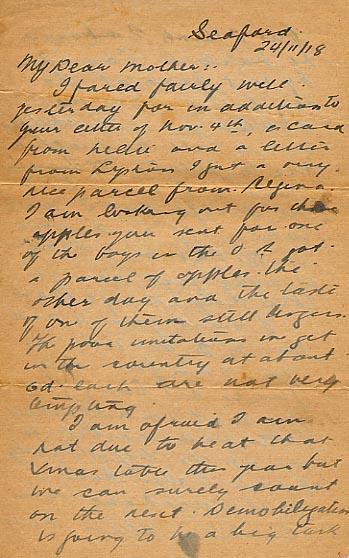 Seaford
24/11/18
My Dear Mother:-
I fared fairly well
yesterday for in addition to
your letter of Nov. 4th, a card
from Nellie and a letter
from I got a very
nice parcel from Regina.
I am looking out for those
apples you sent for one
of the boys in the O. R. got
a parcel of apples the
other day and the taste
of one of them still lingers.
The poor imitations we get
in the country at about
6d. each are not very
tempting.
I am afraid I am
not due to be at that
Xmas table this year but
we can surely count
on the next. Demobilization
is going to be a big task